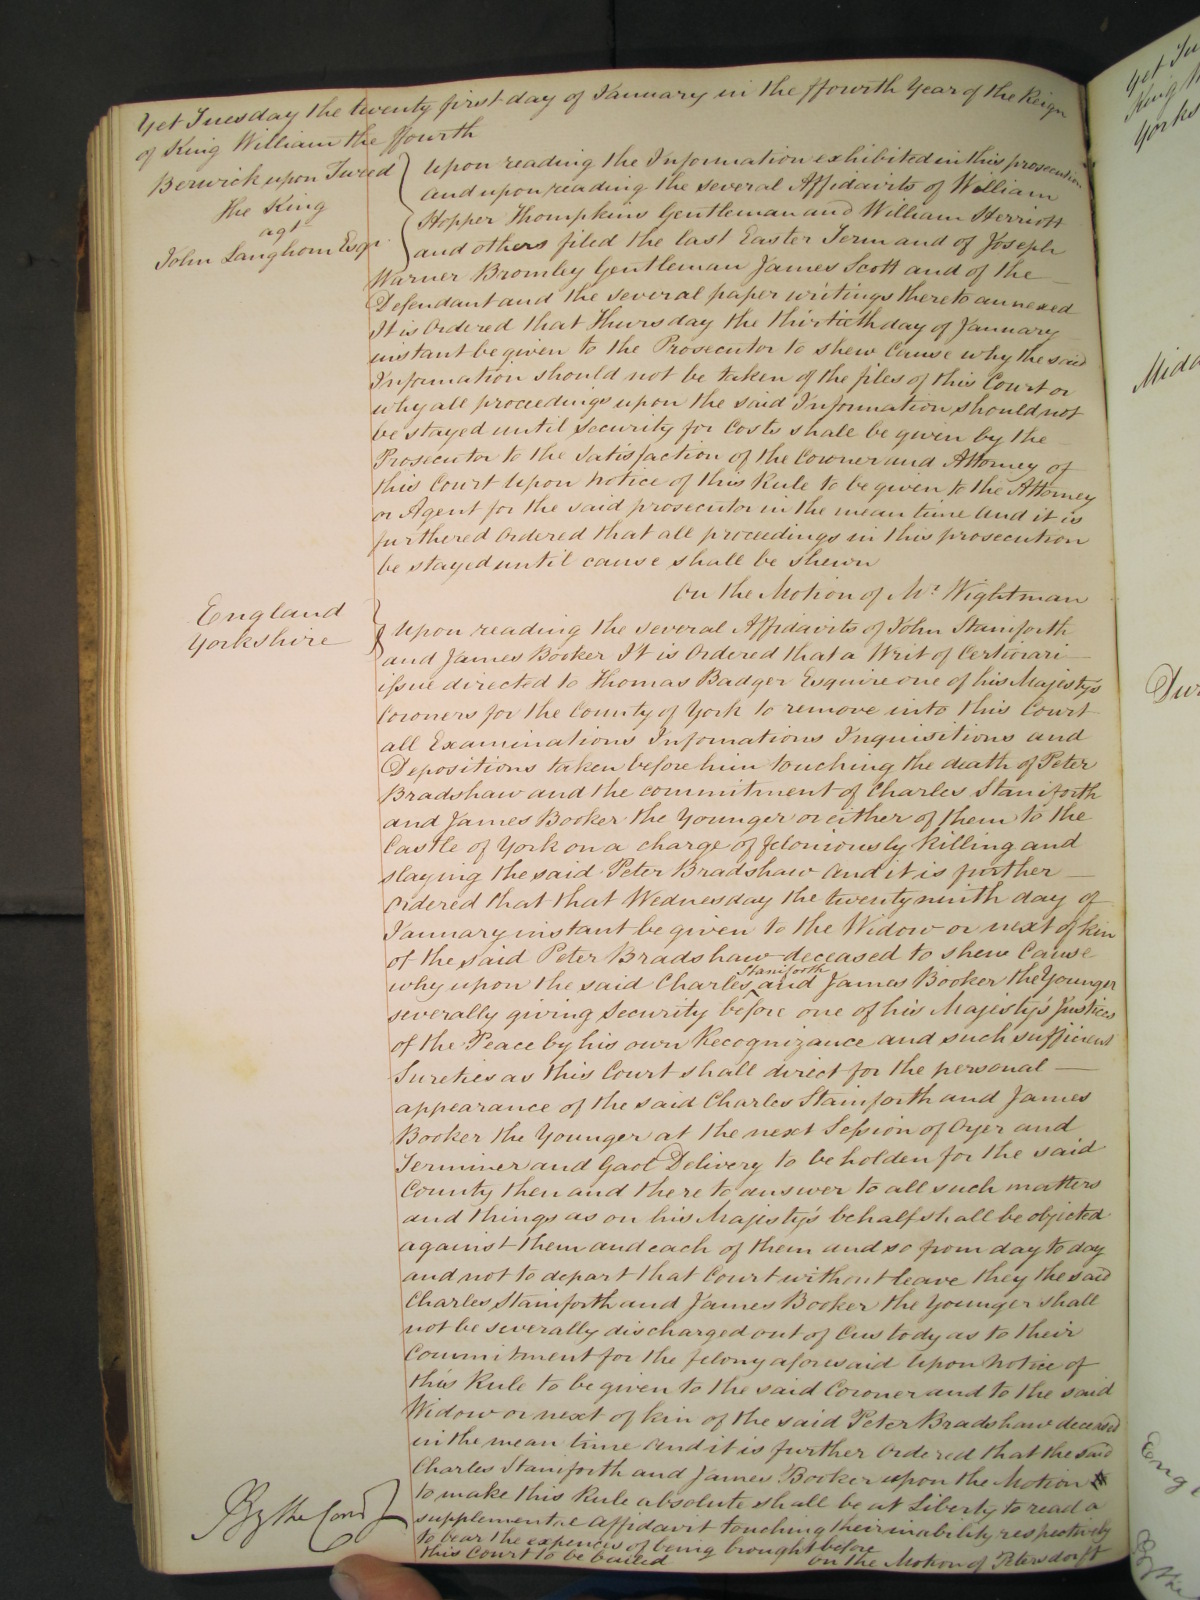 Yet Tuesday the twenty first day of January in the ffourth Year of the Reign
of King William the ffourth
Berwick upon Tweed
The King
agt
John Langhorn Esqr
Upon reading the Information exhibited in this prosecution
and upon reading the several Affidavits of William
Hopper Thompkins Gentleman and William Herriott
and others filed the last Easter Term and of Joseph
Warner Bromley Gentleman James Scott and of the
Defendant and the several paper writings thereto annexed
It is Ordered that Thursday the thirtieth day of January
instant be given to the Prosecutor to shew Cause why the said
Information should not be taken of the files of this Court or
why all proceedings upon the said Information should not
be stayed until Security for Costs shall be given by the
Prosecutor to the satisfaction of the Coroner and Attorney of
this Court Upon Notice of this Rule to be given to the Attorney
or Agent for the said prosecutor in the mean time And it is
furthered Ordered that all proceedings in this prosecution
be stayed until cause shall be shewn
On the Motion of Mr Wightman
England
Yorkshire
Upon reading the several Affidavits of John Staniforth
and James Booker It is Ordered that a Writ of Certiorari
issue directed to Thomas Badger Esquire one of his Majesty's
Coroners for the County of York to remove into this Court
all Examinations Informations Inquisitions and
Depositions taken before him touching the death of Peter
Bradshaw and the commitment of Charles Staniforth
and James Booker the Younger or either of them to the
Castle of York on a charge of feloniously killing and
slaying the said Peter Bradshaw And it is further
Ordered that that Wednesday the twenty ninth day of
January instant be given to the Widow or next of kin
of the said Peter Bradshaw deceased to shew Cause
why upon the said Charles Staniforth and James Booker the Younger
severally giving Security before one of his Majesty's Justices
of the Peace by his own Recognizance and such sufficient
Sureties as this Court shall direct for the personal
appearance of the said Charles Staniforth and James
Booker the Younger at the next Session of Oyer and
Terminer and Gaol Delivery to be holden for the said
County then and there to answer to all such matters
and things as on his Majesty's behalf shall be objected
against them and each of them and so from day to day
and not to depart that Court without leave they the said
Charles Staniforth and James Booker the Younger shall
not be severally discharged out of Custody as to their
Commitment for the felony aforesaid Upon Notice of
this Rule to be given to the said Coroner and to the said
Widow or next of kin of the said Peter Bradshaw deceased
in the mean time And it is further Ordered that the said
Charles Staniforth and James Booker upon the Motion
to make this Rule absolute shall be at Liberty to read a
supplemental Affidavit touching their inability respectively
to bear the expences of being brought before
this Court to be bailed
On the Motion of Petersdorff
By the Court